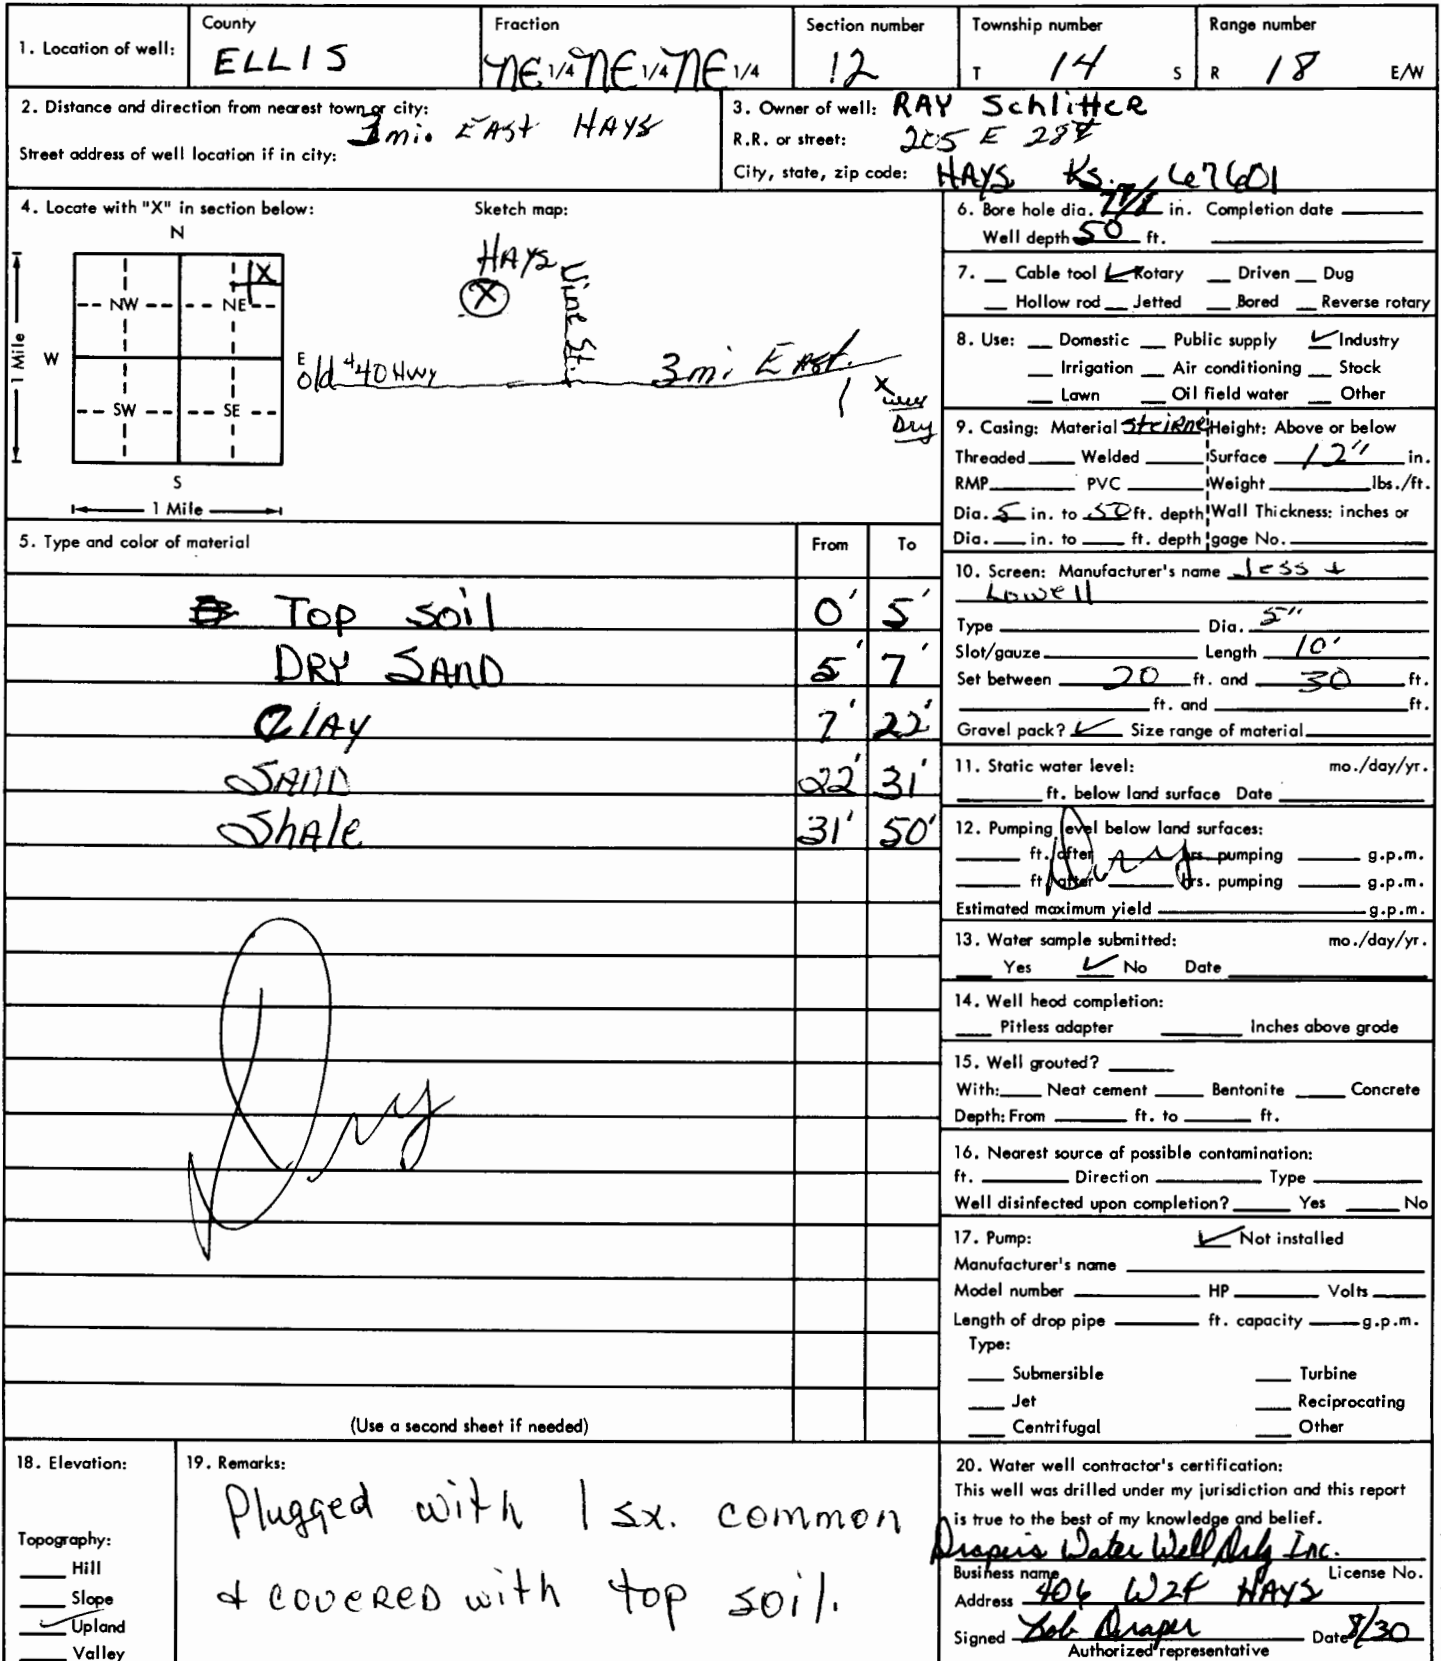 1. Location of well: County ELLIS Fraction NE 1/4 NE 1/4 NE 1/4 Section number 12 Township number T 14 S Range number R 18 E/W
2. Distance and direction from nearest town or city: 3 mi. EAST HAYS
Street address of well location if in city:
3. Owner of well: RAY Schlitter
R.R. or street: 205 E 28th
City, state, zip code: HAYS Ks. 67601
4. Locate with "X" in section below:
N
NW NE
W E
SW SE
S
1 Mile
1 Mile
X
Sketch map:
HAYS
X
Vine St.
old #40 Hwy 3 mi East.
X
Dry
5. Type and color of material From To
Top Soil 0' 5'
DRY SAND 5' 7'
Clay 7' 22'
SAND 22' 31'
Shale 31' 50'
Dry
(Use a second sheet if needed)
6. Bore hole dia. 7 7/8 in. Completion date
Well depth 50 ft.
7. Cable tool ✓ Rotary Driven Dug
Hollow rod Jetted Bored Reverse rotary
8. Use: Domestic Public supply ✓ Industry
Irrigation Air conditioning Stock
Lawn Oil field water Other
9. Casing: Material Height: Above or below
Threaded Welded Surface 12" in.
RMP PVC Weight lbs./ft.
Dia. 5 in. to 50 ft. depth Wall Thickness: inches or
Dia. in. to ft. depth gage No.
10. Screen: Manufacturer's name Jess +
Lowell
Type Dia. 5"
Slot/gauze Length 10'
Set between 20 ft. and 30 ft.
ft. and ft.
Gravel pack? ✓ Size range of material
11. Static water level: mo./day/yr.
ft. below land surface Date
12. Pumping level below land surfaces:
ft. after hrs. pumping g.p.m.
ft. after hrs. pumping g.p.m.
Dry
Estimated maximum yield g.p.m.
13. Water sample submitted: mo./day/yr.
Yes ✓ No Date
14. Well head completion:
Pitless adapter Inches above grade
15. Well grouted?
With: Neat cement Bentonite Concrete
Depth: From ft. to ft.
16. Nearest source of possible contamination:
ft. Direction Type
Well disinfected upon completion? Yes No
17. Pump: ✓ Not installed
Manufacturer's name
Model number HP Volts
Length of drop pipe ft. capacity g.p.m.
Type:
Submersible Turbine
Jet Reciprocating
Centrifugal Other
18. Elevation:
Topography:
Hill
Slope
✓ Upland
Valley
19. Remarks:
Plugged with 1 sx. common
& covered with top soil.
20. Water well contractor's certification:
This well was drilled under my jurisdiction and this report
is true to the best of my knowledge and belief.
Draper's Water Well Drlg Inc.
Business name License No.
Address 406 W 24 HAYS
Signed Bob Draper Date 8/30
Authorized representative